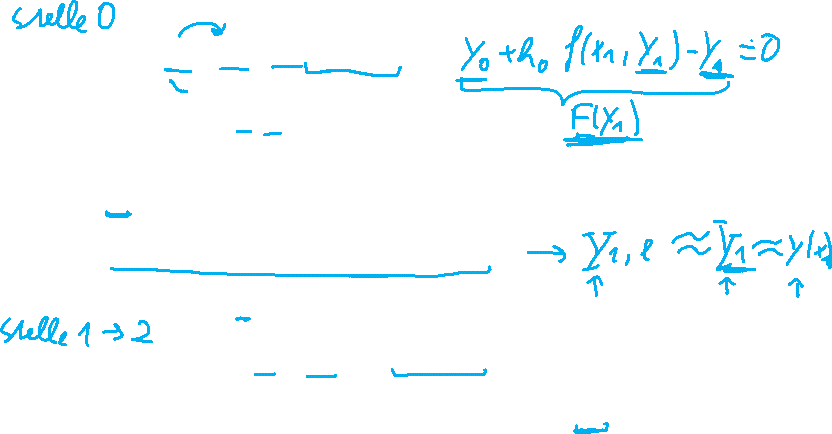 Stelle 0
y₀ + h₀ f(x₁, y₁) - y₁ = 0
F(y₁)
→ y₁,ℓ ≈ y₁ ≈ y(x₁)
Stelle 1 → 2